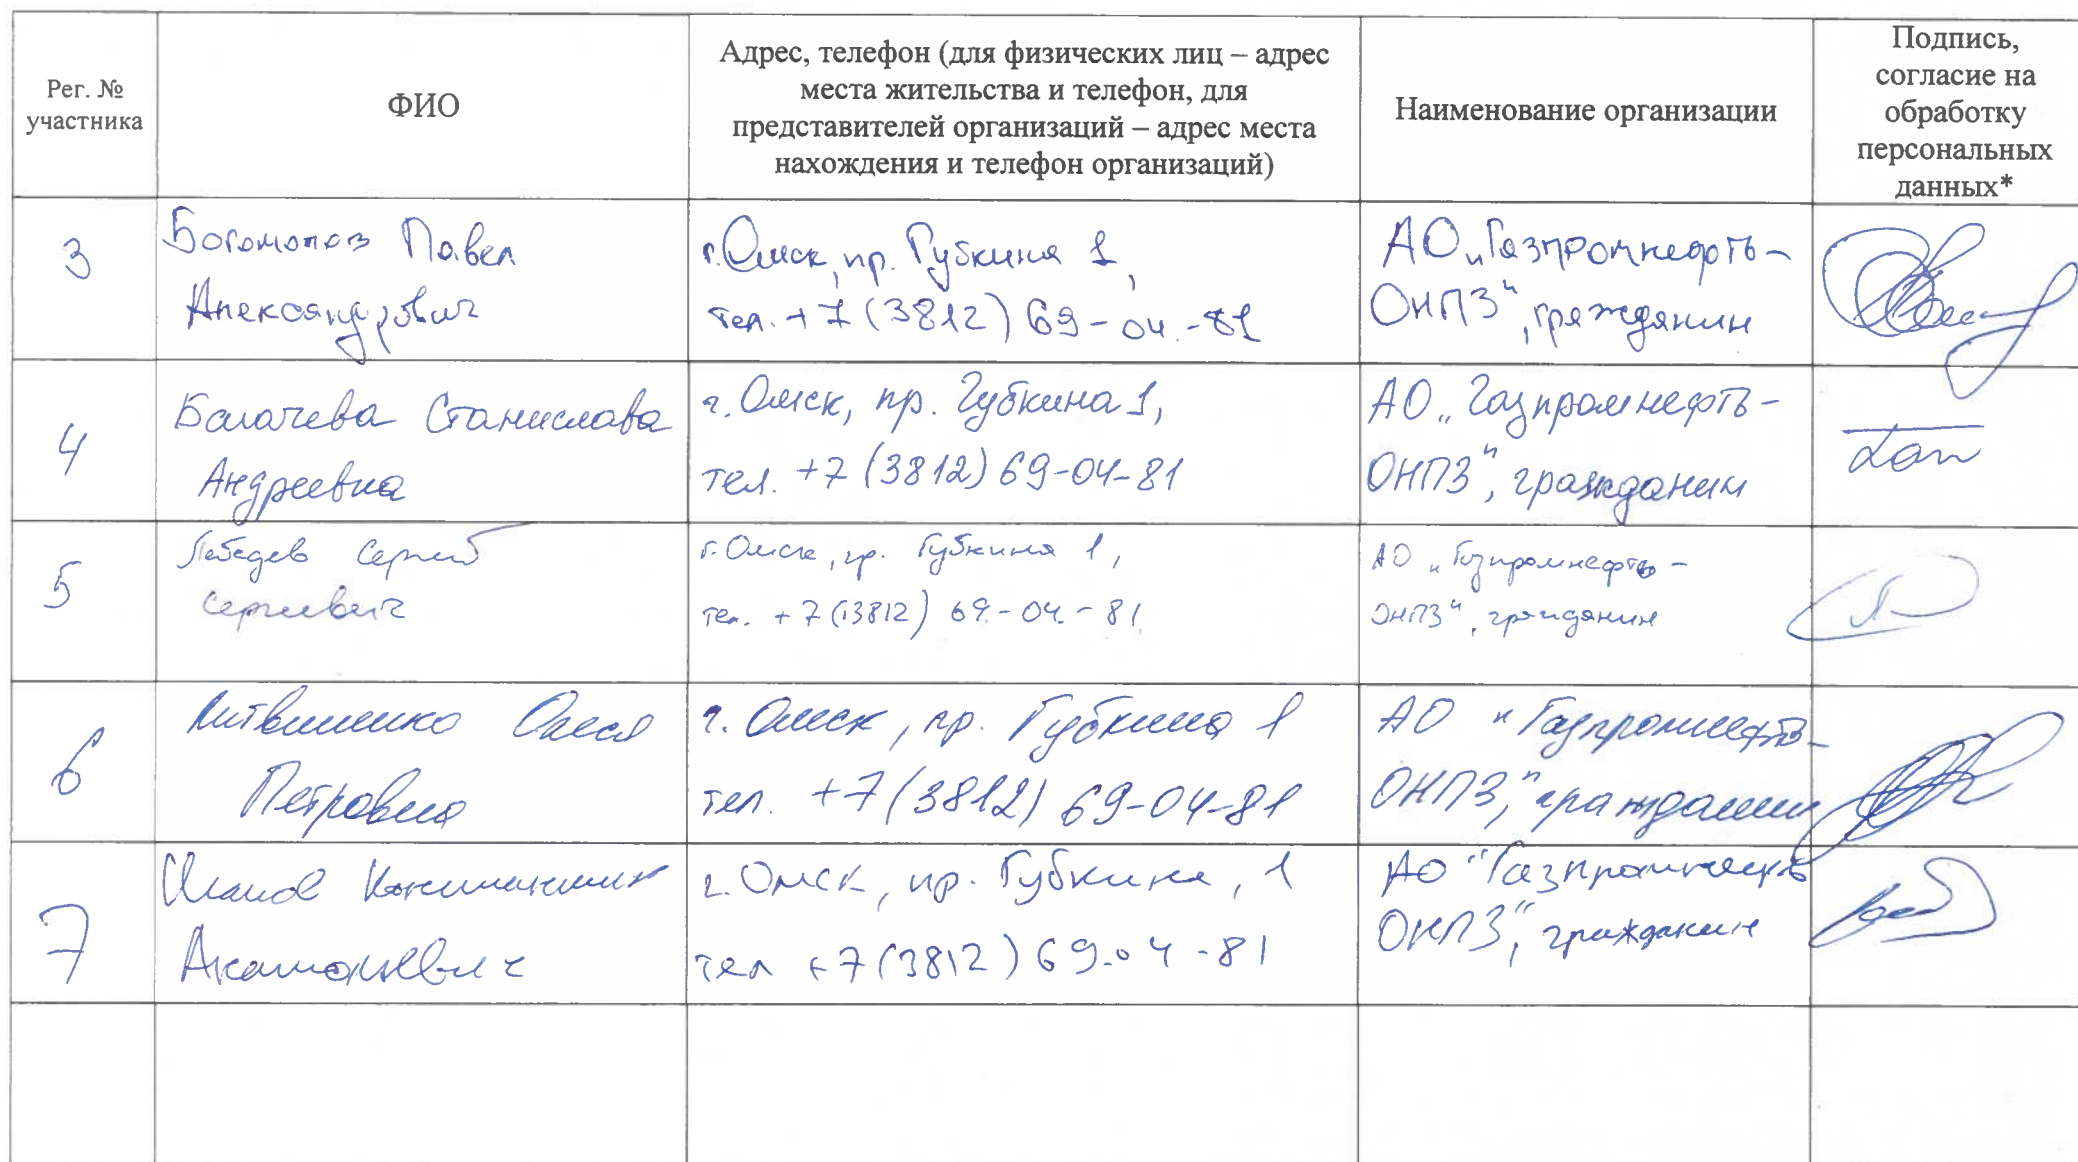 Рег. №
участника
ФИО
Адрес, телефон (для физических лиц – адрес
места жительства и телефон, для
представителей организаций – адрес места
нахождения и телефон организаций)
Наименование организации
Подпись,
согласие на
обработку
персональных
данных*
3
Богомолов Павел
Александрович
г. Омск, пр. Губкина 1,
тел. +7 (3812) 69-04-81
АО „Газпромнефть-
ОНПЗ“, гражданин
4
Станислава
Андреевна
г. Омск, пр. Губкина 1,
тел. +7 (3812) 69-04-81
АО „Газпромнефть-
ОНПЗ“, гражданин
5
Лебедев Сергей
Сергеевич
г. Омск, пр. Губкина 1,
тел. +7 (3812) 69-04-81
АО „Газпромнефть-
ОНПЗ“, гражданин
6
Литвиненко Олеся
Петровна
г. Омск, пр. Губкина 1
тел. +7 (3812) 69-04-81
АО "Газпромнефть-
ОНПЗ", гражданин
7
г. Омск, пр. Губкина, 1
тел +7 (3812) 69-04-81
АО "Газпромнефть
ОНПЗ", гражданин